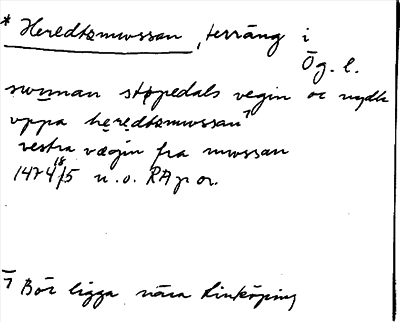 * Heredtzmwssan, terräng i
Ög. l.
swnnan støpedals vegin oc nydh
vppa heredtzmwssan 1
vestra vægin fra mwssan
1474 18/5 u. o. RAp or.
1 Bör ligga nära Linköping